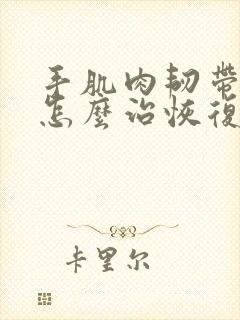 手肌肉韧带
怎麼治恢復
卡里尔